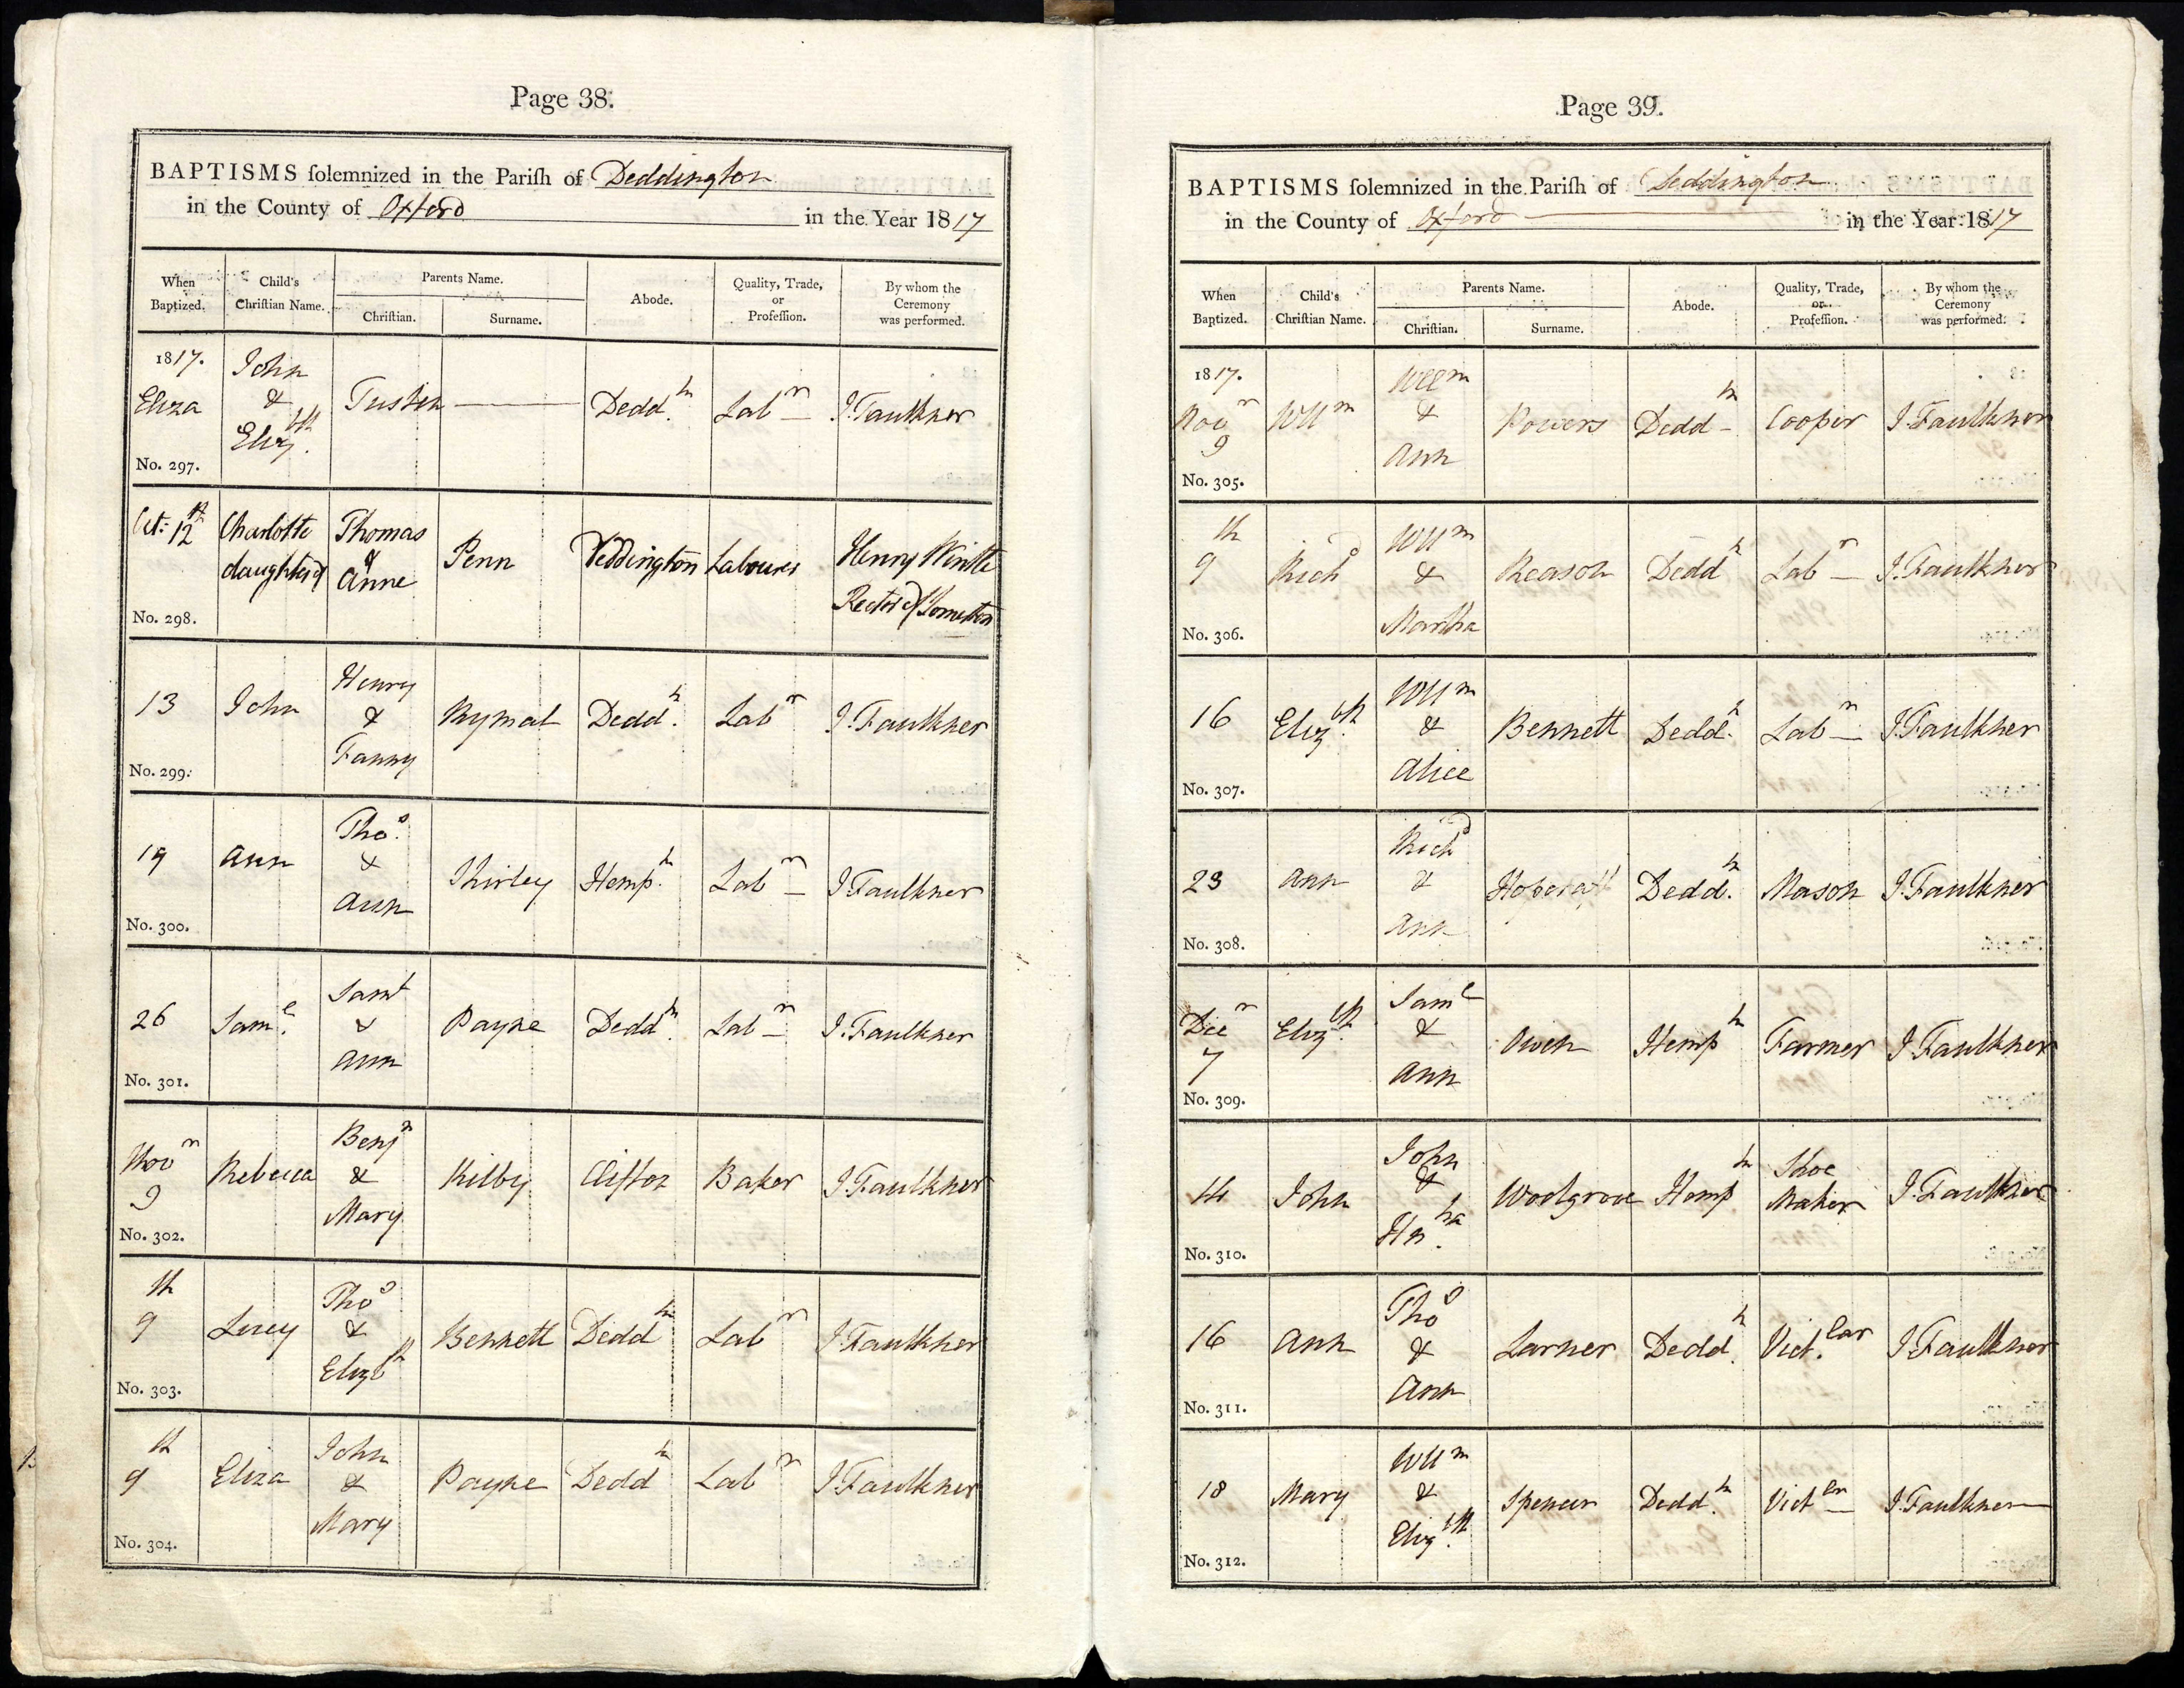 Page 38.
BAPTISMS ſolemnized in the Pariſh of Deddington
in the County of Oxford in the Year 1817
When Baptized. Child's Chriſtian Name. Parents Name. Chriſtian. Surname. Abode. Quality, Trade, or Profeſſion. By whom the Ceremony was performed.
1817.
Eliza John & Eliz.bth Tustin Dedd.n Labr J. Faulkner
No. 297.
Oct: 12th Charlotte daughter of Thomas & Anne Penn Deddington Labourer Henry Wintle Rector of Somerton
No. 298.
13 John Henry & Fanny Rymal Dedd.n Labr J. Faulkner
No. 299.
19 Ann Tho.s & Ann Shirley Hemp.n Labr J. Faulkner
No. 300.
26 Sam.l Saml & Ann Payne Dedd.n Labr J. Faulkner
No. 301.
Novr 9 Rebecca Benjn & Mary Kilby Clifton Baker J. Faulkner
No. 302.
9th Lucy Thos & Elizbth Bennett Deddn Labr J. Faulkner
No. 303.
9th Eliza John & Mary Payne Deddn Labr J. Faulkner
No. 304.
Page 39.
BAPTISMS ſolemnized in the Pariſh of Deddington
in the County of Oxford in the Year 1817
When Baptized. Child's Chriſtian Name. Parents Name. Chriſtian. Surname. Abode. Quality, Trade, or Profeſſion. By whom the Ceremony was performed.
1817.
Novr 9 Willm Willm & Ann Powers Deddn Cooper J. Faulkner
No. 305.
9th Richd Willm & Martha Reason Deddn Labr J. Faulkner
No. 306.
16 Eliz.bth Willm & Alice Bennett Dedd.n Labr J. Faulkner
No. 307.
23 Ann Richd & Ann Hopcraft Dedd.n Mason J. Faulkner
No. 308.
Decr 7 Eliz.bth Saml & Ann Owen Hempn Farmer J. Faulkner
No. 309.
14 John John & Ha.nah Woolgrove Hempn Shoe Maker J. Faulkner
No. 310.
16 Ann Thos & Ann Larner Dedd.n Vict.lar J. Faulkner
No. 311.
18 Mary Willm & Eliz.bth Spencer Dedd.n Victlr J. Faulkner
No. 312.